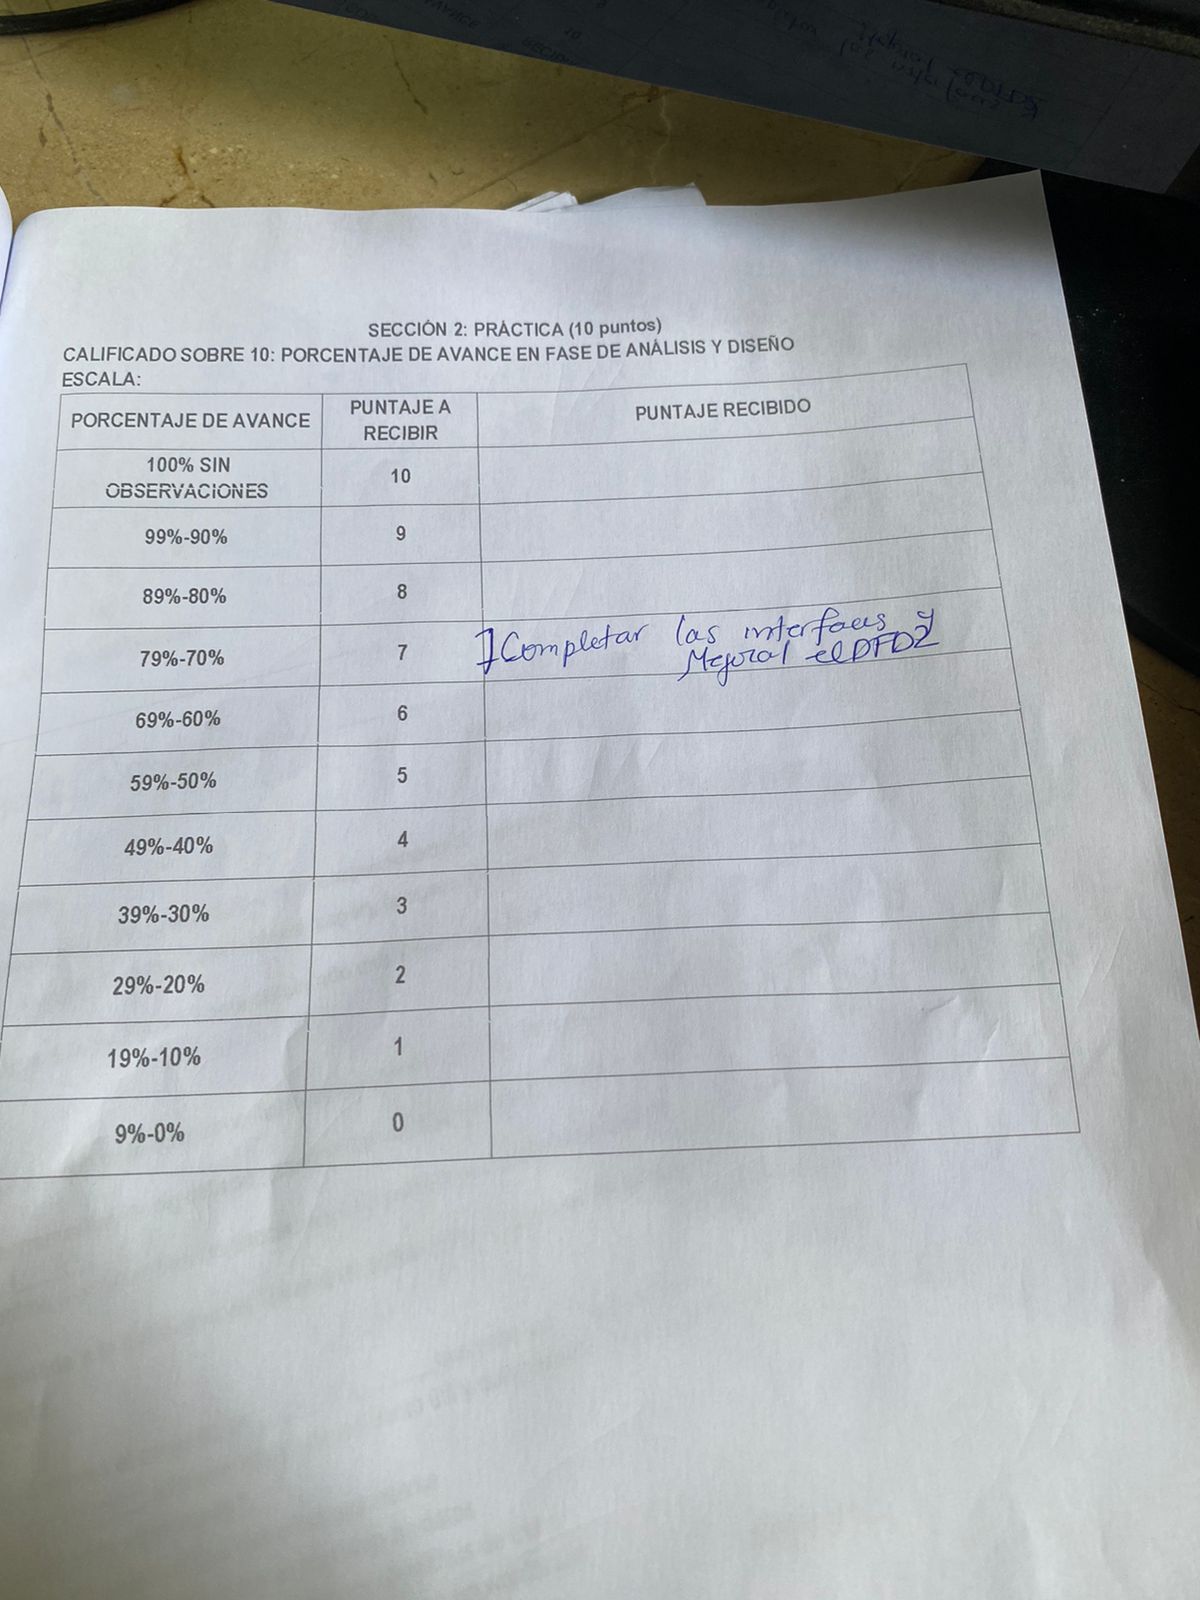 SECCIÓN 2: PRÁCTICA (10 puntos)
CALIFICADO SOBRE 10: PORCENTAJE DE AVANCE EN FASE DE ANÁLISIS Y DISEÑO
ESCALA:
PORCENTAJE DE AVANCE PUNTAJE A RECIBIR PUNTAJE RECIBIDO
100% SIN OBSERVACIONES 10
99%-90% 9
89%-80% 8
79%-70% 7 Completar las interfaces y
Mejorar el DFD2
69%-60% 6
59%-50% 5
49%-40% 4
39%-30% 3
29%-20% 2
19%-10% 1
9%-0% 0